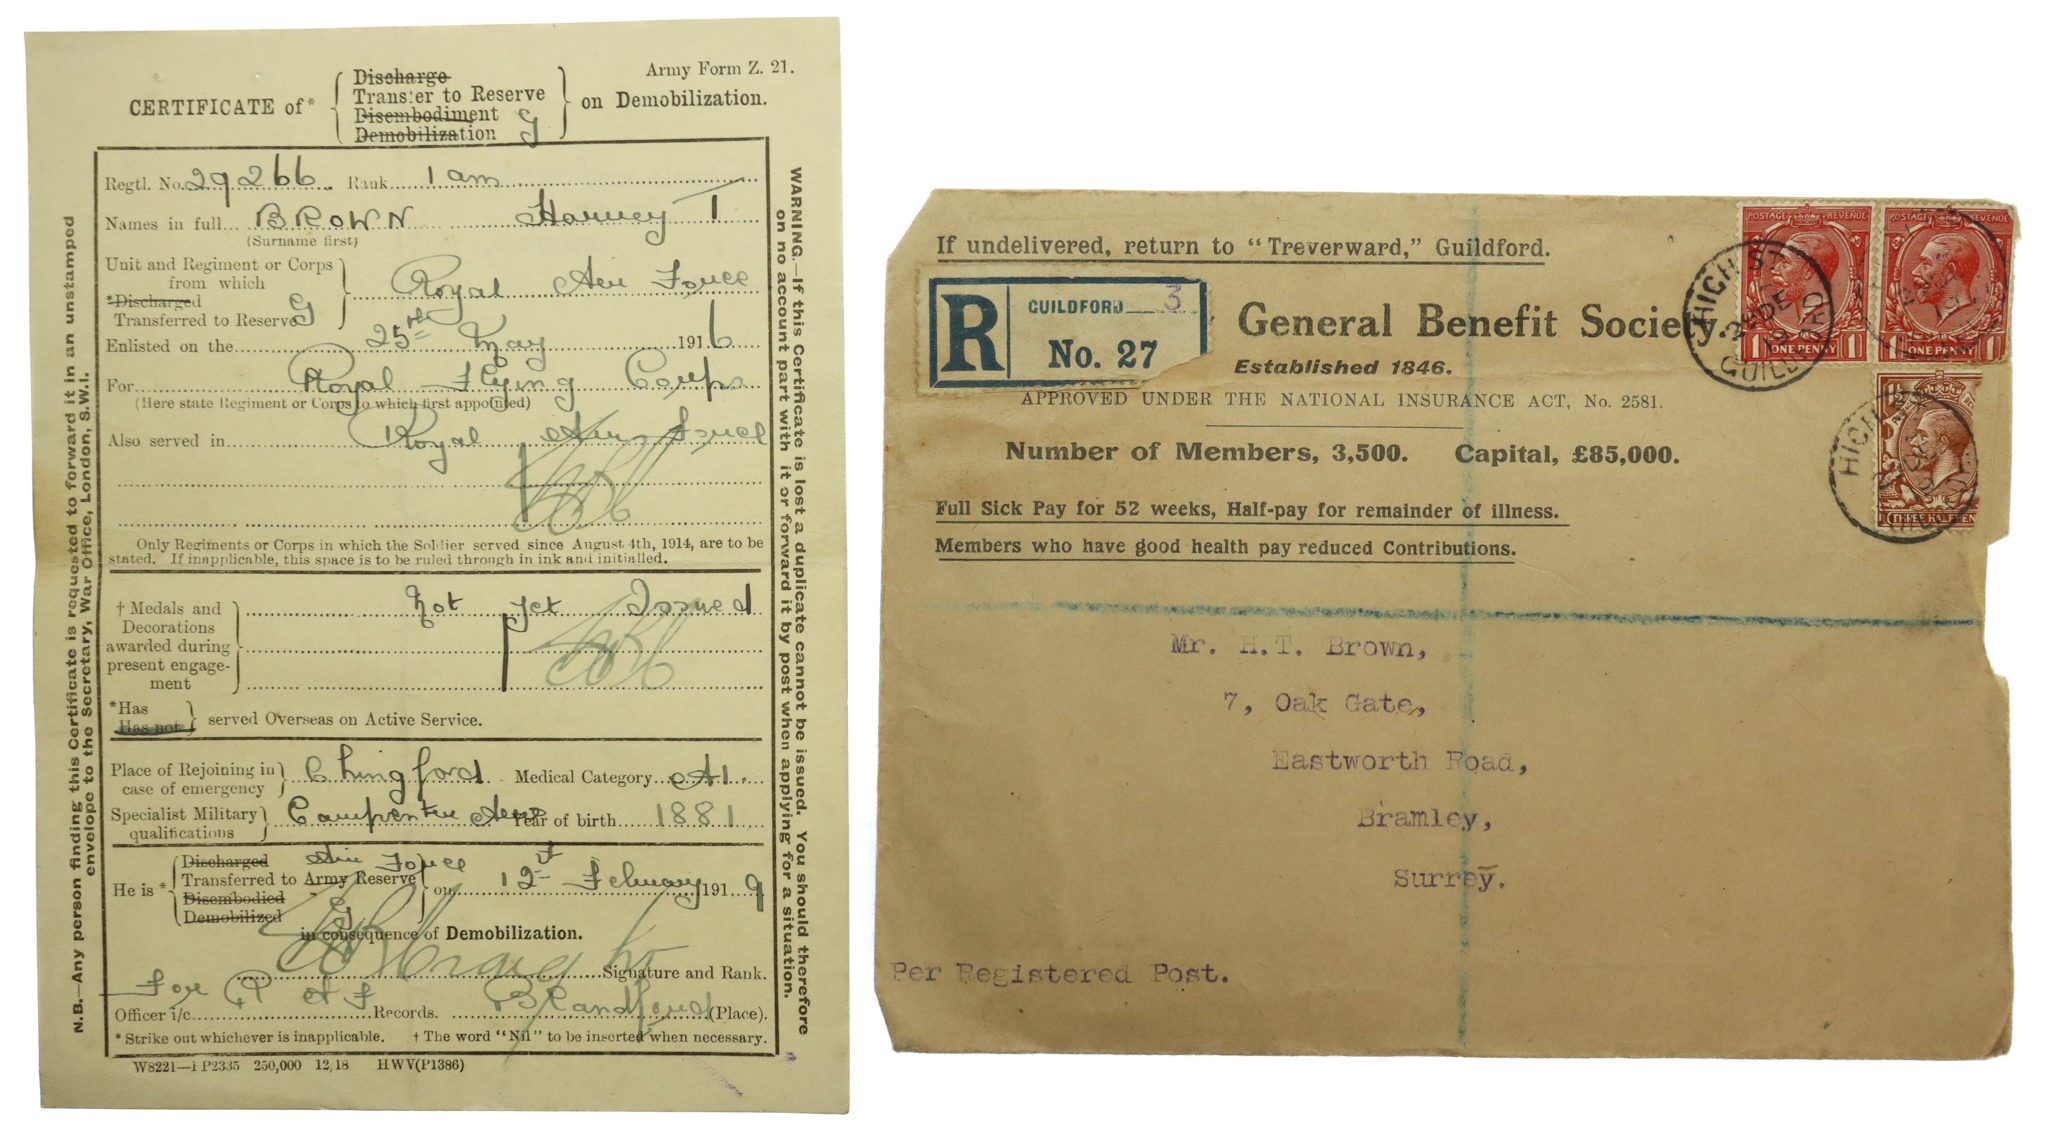 Army Form Z. 21.
CERTIFICATE of* { Discharge
Transfer to Reserve
Disembodiment
Demobilization } on Demobilization.
Regtl. No. 29266 Rank 1 am
Names in full BROWN Harvey T
(Surname first)
Unit and Regiment or Corps
from which
*Discharged
Transferred to Reserve
Royal Air Force
Enlisted on the 25th May 1916
For Royal Flying Corps
(Here state Regiment or Corps to which first appointed)
Also served in Royal Air Force
Only Regiments or Corps in which the Soldier served since August 4th, 1914, are to be
stated. If inapplicable, this space is to be ruled through in ink and initialled.
† Medals and
Decorations
awarded during
present engage-
ment
Not yet Issued
*Has
Has not
served Overseas on Active Service.
Place of Rejoining in
case of emergency
Chingford Medical Category A1.
Specialist Military
qualifications
Carpenter Aero Year of birth 1881
He is *
Discharged
Transferred to Army Reserve
Air Force
Disembodied
Demobilized
on 12th February 1919
in consequence of Demobilization.
Signature and Rank.
For R A F
Officer i/c Records. Blandford (Place).
* Strike out whichever is inapplicable. † The word "Nil" to be inserted when necessary.
W8221—P2335 250,000 12/18 HWV(P1386)
N.B.—Any person finding this Certificate is requested to forward it in an unstamped
envelope to the Secretary, War Office, London, S.W.1.
WARNING.—If this Certificate is lost a duplicate cannot be issued. You should therefore
on no account part with it or forward it by post when applying for a situation.
If undelivered, return to "Treverward," Guildford.
R
GUILDFORD 3
No. 27
General Benefit Society.
Established 1846.
APPROVED UNDER THE NATIONAL INSURANCE ACT, No. 2581.
Number of Members, 3,500. Capital, £85,000.
Full Sick Pay for 52 weeks, Half-pay for remainder of illness.
Members who have good health pay reduced Contributions.
POSTAGE REVENUE
1 ONE PENNY 1
POSTAGE REVENUE
1 ONE PENNY 1
THREE HALFPEN
HIGH ST
GUILDFORD
Mr. H.T. Brown,
7, Oak Gate,
Eastworth Road,
Bramley,
Surrey.
Per Registered Post.